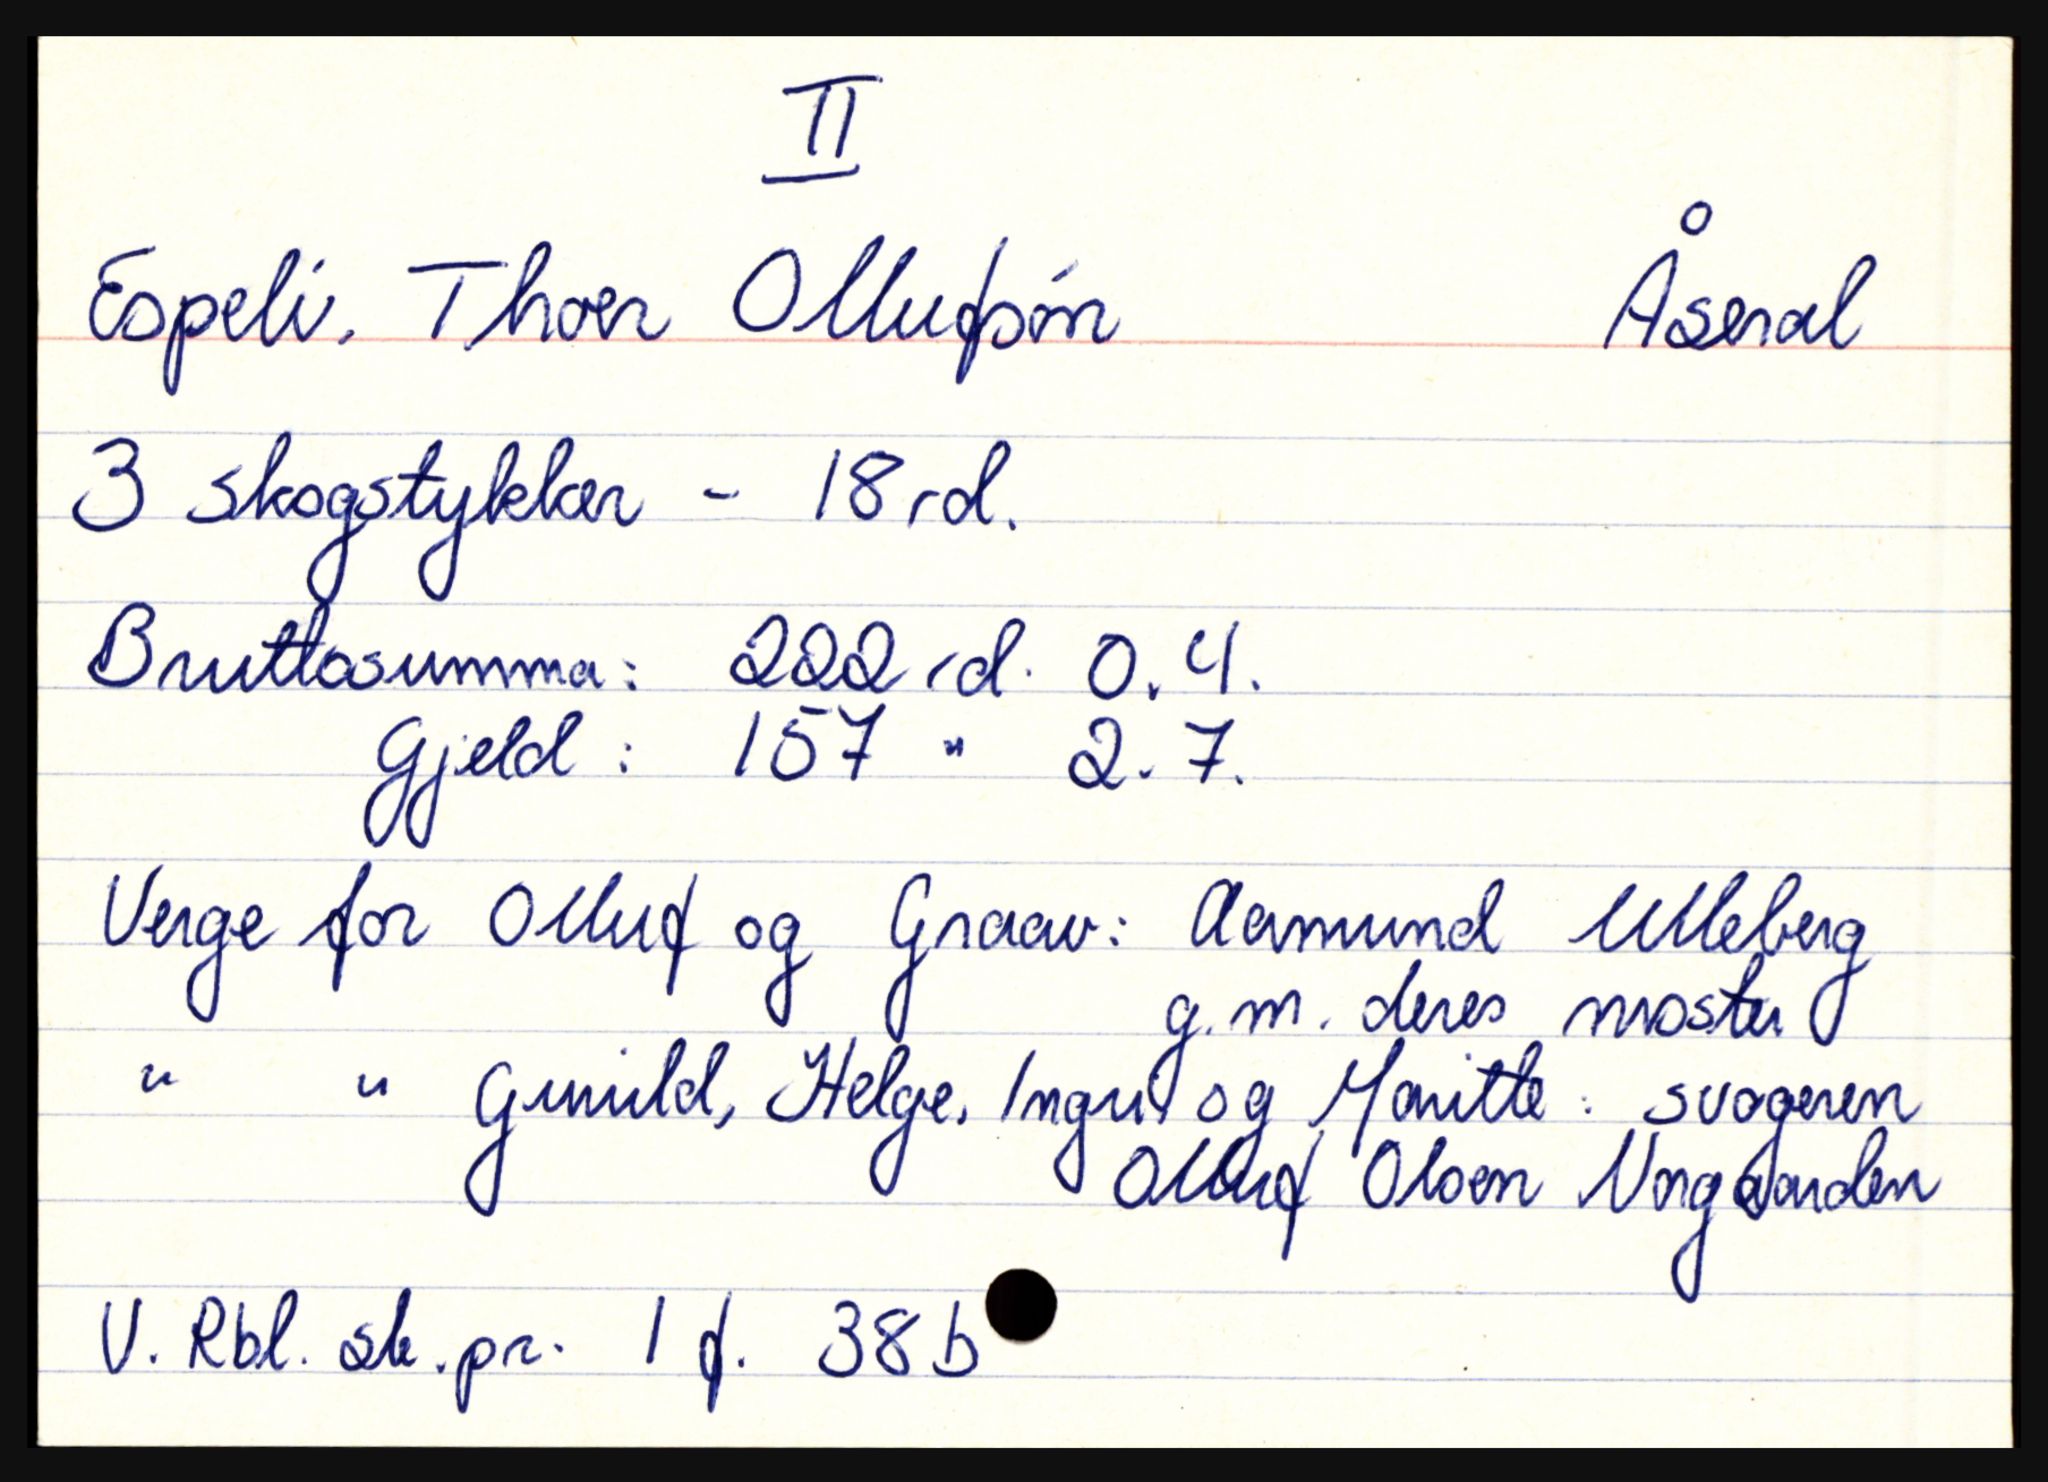 II
Espeli, Thoer Ollufsön Åseral
3 skogstykker - 18 rd.
Bruttosumma: 222 rd. 0.4.
Gjeld: 157 " 2.7.
Verge for Olluf og Graav: Aamund Ulleberg
g.m. deres moster
" " Gunild, Helge, Inguri og Maritte: svogeren
Olluf Olsen Norgaarden
V. Rbl. sk.pr. 1 f. 38b